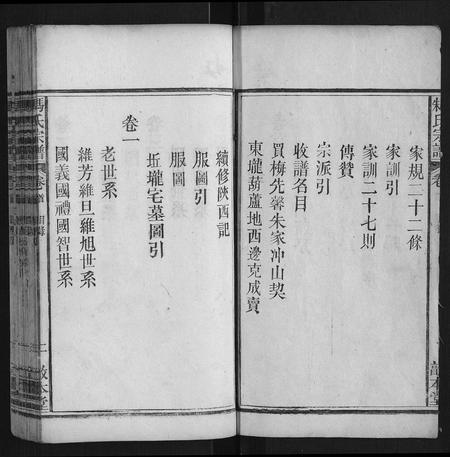 家規三十二條
家訓引
家訓二十七則
傳贊
宗派引
收譜名目
買梅先馨朱家冲山契
東壠葫蘆地西邊克成賣
續修陝西記
服圖引
服圖
坵壠宅墓圖引
卷一
老世系
維芳維旦維旭世系
國義國禮國智世系
氏宗譜
卷
二
敦本堂